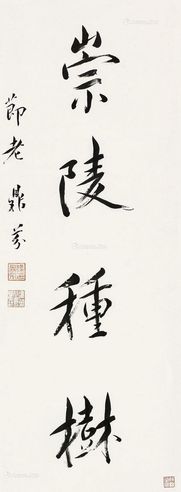 崇陵種樹
節老 鼎芬